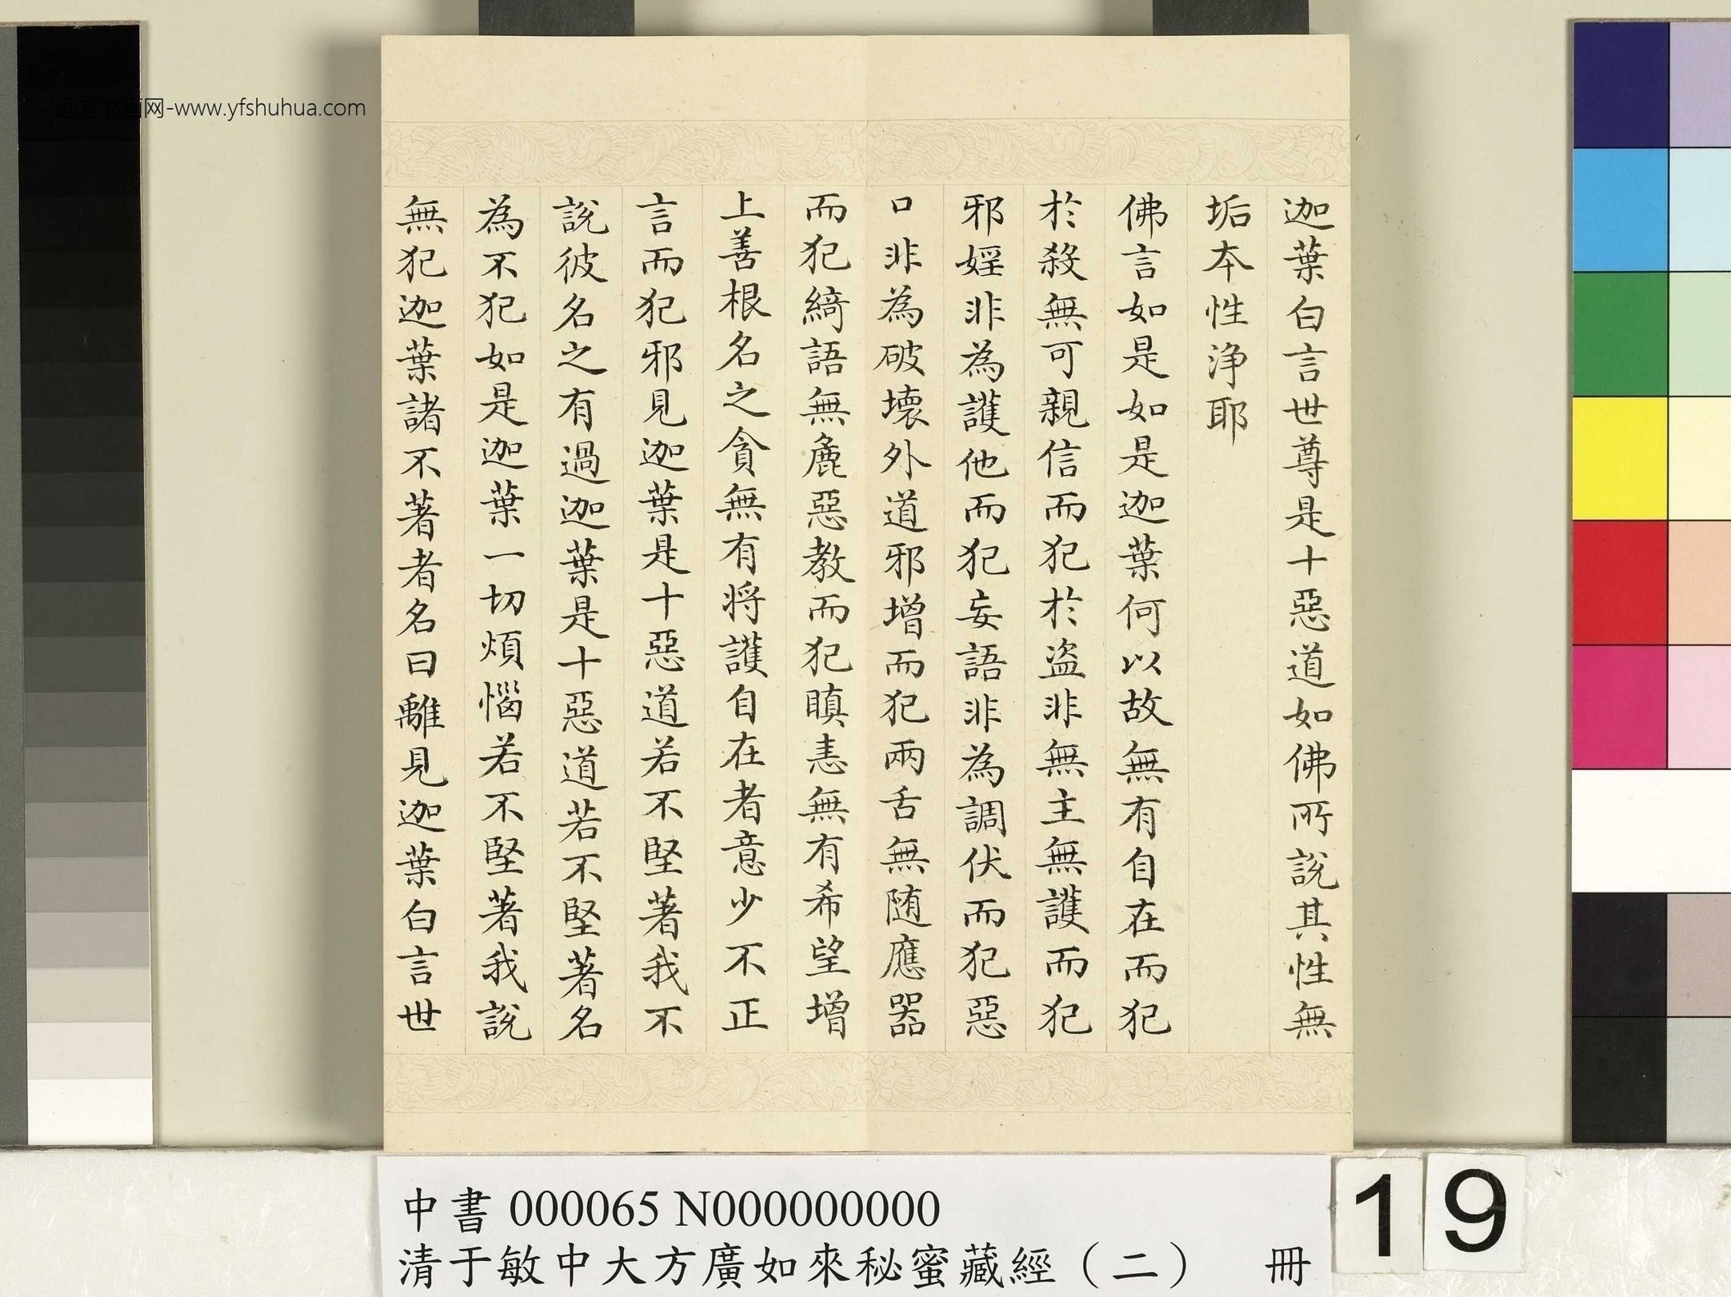 远方书画网-www.yfshuhua.com
迦葉白言世尊是十惡道如佛所說其性無
垢本性浄耶
佛言如是如是迦葉何以故無有自在而犯
於殺無可親信而犯於盜非無主無護而犯
邪婬非為護他而犯妄語非為調伏而犯惡
口非為破壞外道邪增而犯兩舌無随應器
而犯綺語無麁惡教而犯瞋恚無有希望增
上善根名之貪無有將護自在者意少不正
言而犯邪見迦葉是十惡道若不堅著我不
說彼名之有過迦葉是十惡道若不堅著名
為不犯如是迦葉一切煩惱若不堅著我說
無犯迦葉諸不著者名曰離見迦葉白言世
中書 000065 N000000000
清于敏中大方廣如來秘蜜藏經（二） 冊
19